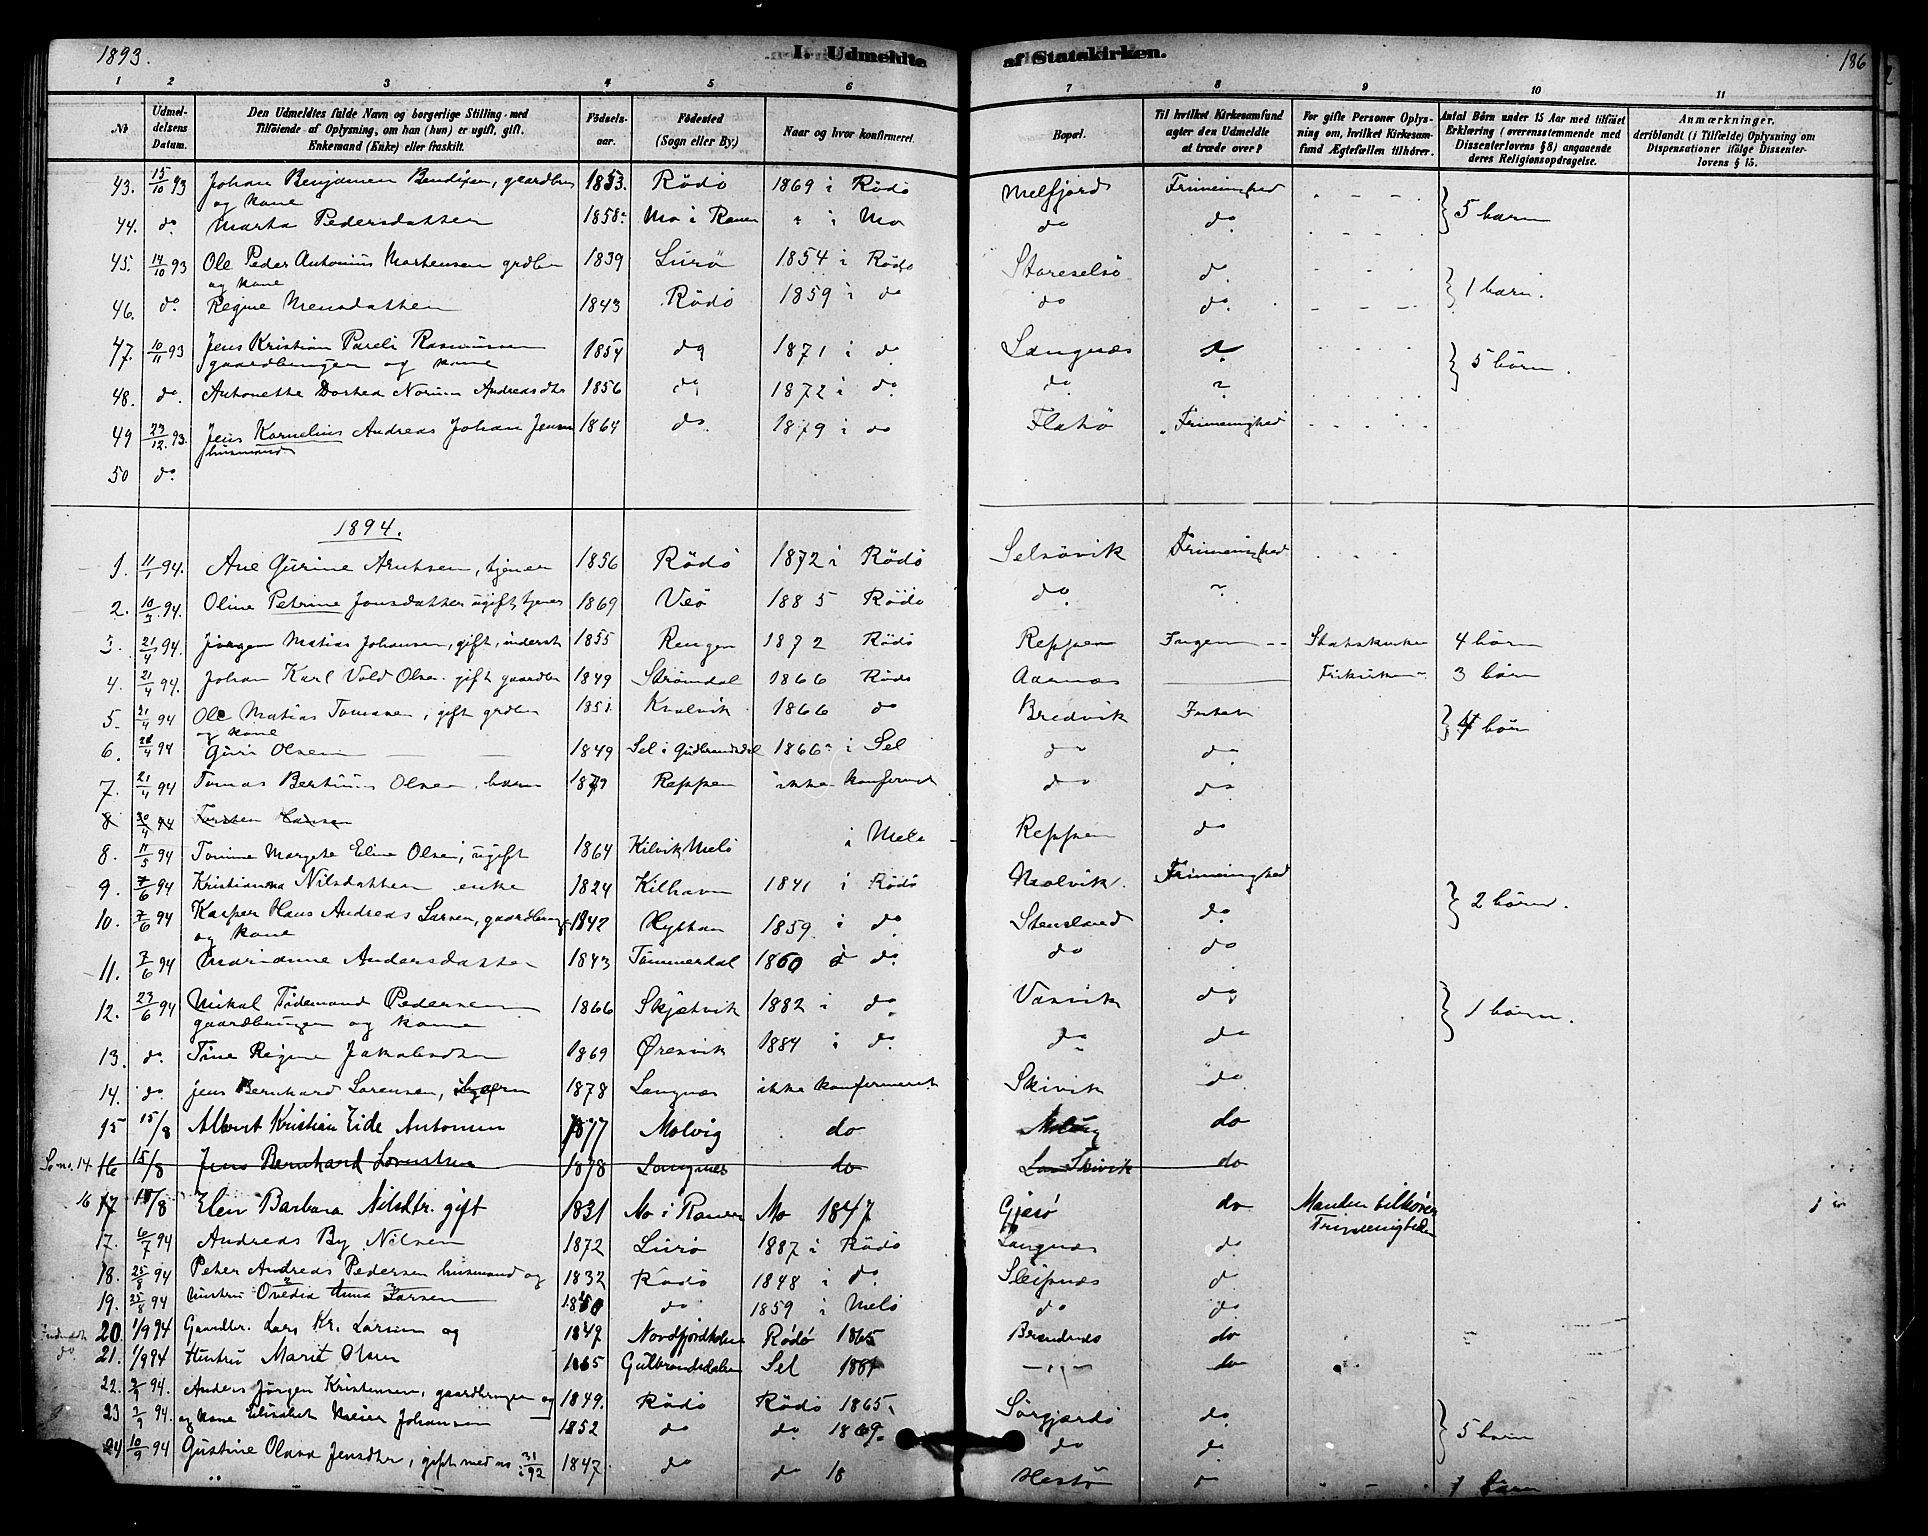 1893.
I. Udmeldte af Statskirken.
186
1 2 3 4 5 6 7 8 9 10 11
No
Udmeldelsens Datum.
Den Udmeldtes fulde Navn og borgerlige Stilling med Tilföiende af Oplysning, om han (hun) er ugift, gift, Enkemand (Enke) eller fraskilt.
Födselsaar.
Födested (Sogn eller By.)
Naar og hvor konfirmeret.
Bopæl.
Til hvilket Kirkesamfund agter den Udmeldte at træde over?
For gifte Personer Oplysning om, hvilket Kirkesamfund Ægtefællen tilhörer.
Antal Börn under 15 Aar med tilföiet Erklæring (overensstemmende med Dissenterlovens § 8) angaaende deres Religionsopdragelse.
Anmærkninger, deriblandt (i Tilfælde) Oplysning om Dispensationer ifölge Dissenterlovens § 15.
43. 15/10 93 Johan Benjamin Bendixen, gaardbr og kone 1853. Rödö 1869 i Rödö Melfjord Frimenighed } 5 barn
44. do. Marta Pedersdatter 1858 Mo i Ranen " i Mo do do
45. 14/10 93 Ole Peder Antonius Mortensen grdbr og kone 1839 Lurö 1854 i Rödö Storeselsö do } 1 barn.
46. do. Regine Monsdatter 1843 Rödö 1859 i do do do
47. 10/11 93 Jens Kristian Pareli Rasmussen gaardbruger og kone 1854 do 1871 i do Langnæs } 5 börn.
48. do. Antonette Dortea Andreasdtr 1856 do 1872 i do do
49 23/12 93. Jens Kornelius Andreas Johan Jensen husmand 1864 do. 1879 i do Flatö Frimenighed
50 do.
1894.
1. 11/1 94. Ane Gurine Arntsen, tjener 1856 Rödö 1872 i Rödö Selsövik Frimenighed
2. 10/3 94. Oline Petrine Jonsdatter ugift, tjener 1869 Veö 1885 Rödö do
3. 21/4 94. Jörgen Matias Johansen, gift, inderst 1855 Rengen 1872 Rödö Reppen Ingen Statskirken 4 börn
4. 21/4 94. Johan Karl Vold Olsen gift gaardbr 1849 Strömdal 1866 Rödö Aarnæs Frikirken 3 börn
5. 21/4 94 Ole Matias Tomasen, gift grdbr og kone 1851 Kvalvik 1866 do Bredvik } 4 börn
6. 21/4 94 Guri Olsen 1849 Sel i Gudbrandsdal 1866 i Sel do do
7. 21/4 94 Tomas Bertinus Olsen, barn 1879 Reppen ikke konfirmert do do
8 30/4 94 Torsten Hansen
8. 11/5 94 Tomine Margrete Eline Olsen, ugift 1864 Kilvik Melö i Melö Reppen do
9. 7/6 94 Kristianna Nilsdatter enke 1824 Kilhavn 1841 i Rödö Molvik. Frimenighed
10. 7/6 94 Kasper Hans Andreas Larsen, gaardbruger og kone 1842 Hytten 1859 i do Stensland do } 2 börn.
11. 7/6 94 Marianne Andersdatter 1843 Tömmerdal 1860 i do. do do
12. 23/6 94 Mikal Tidemand Pedersen gaardbruger og kone 1866 Skjætvik 1882 i do Vasvik do } 1 börn.
13. do. Tine Regine Jakobsdtr 1869 Öresvik 1884 i do. do do
14. do Jens Bernhard Sörensen, 1878 Langnæs ikke konfirmeret Skivik do
15 15/8 Albert Kristian Eide Antonsen 1877 Molvig do Molvig do
Se no. 14. 16 15/8 Jens Bernhard Lorentsen 1878 Langnes do Skivik do
16 17 15/8 Elen Barbara Nilsdtr. gift 1831 Mo i Ranen Mo 1847 Gjesö do Manden tilhörer Frimenigheden
17. 6/7 94 Andreas By Nilsen 1872 Lurö 1887 i Rödö Langnæs do
18. 25/8 94 Peter Andreas Pedersen husmand og 1832 Rödö 1848 i do. Sleipnæs do
19. 25/8 94 hustru Ovedia Anna Larsen 1850 do 1859 i Melö do do
20. 1/9 94 Gaardbr. Lars Kr. Larsen og 1847 Nordfjordholm Rödö 1865 do
do 21. 1/9 94 Hustru Marit Olsen 1865 Gulbrandsdalen Sel do
22. 2/9 94. Anders Jörgen Kristensen, gaardbruger og 1849. Rödö Rödö 1865. Sörgjærö do
23 2/9 94. og kone Elisabet Meier Johansen 1852 do do 1869. do do } 5 barn
24 10/9 94 Gustine Olava Jensdtr, gift med no 31/92 1847 do do 18 Hestö 1 barn